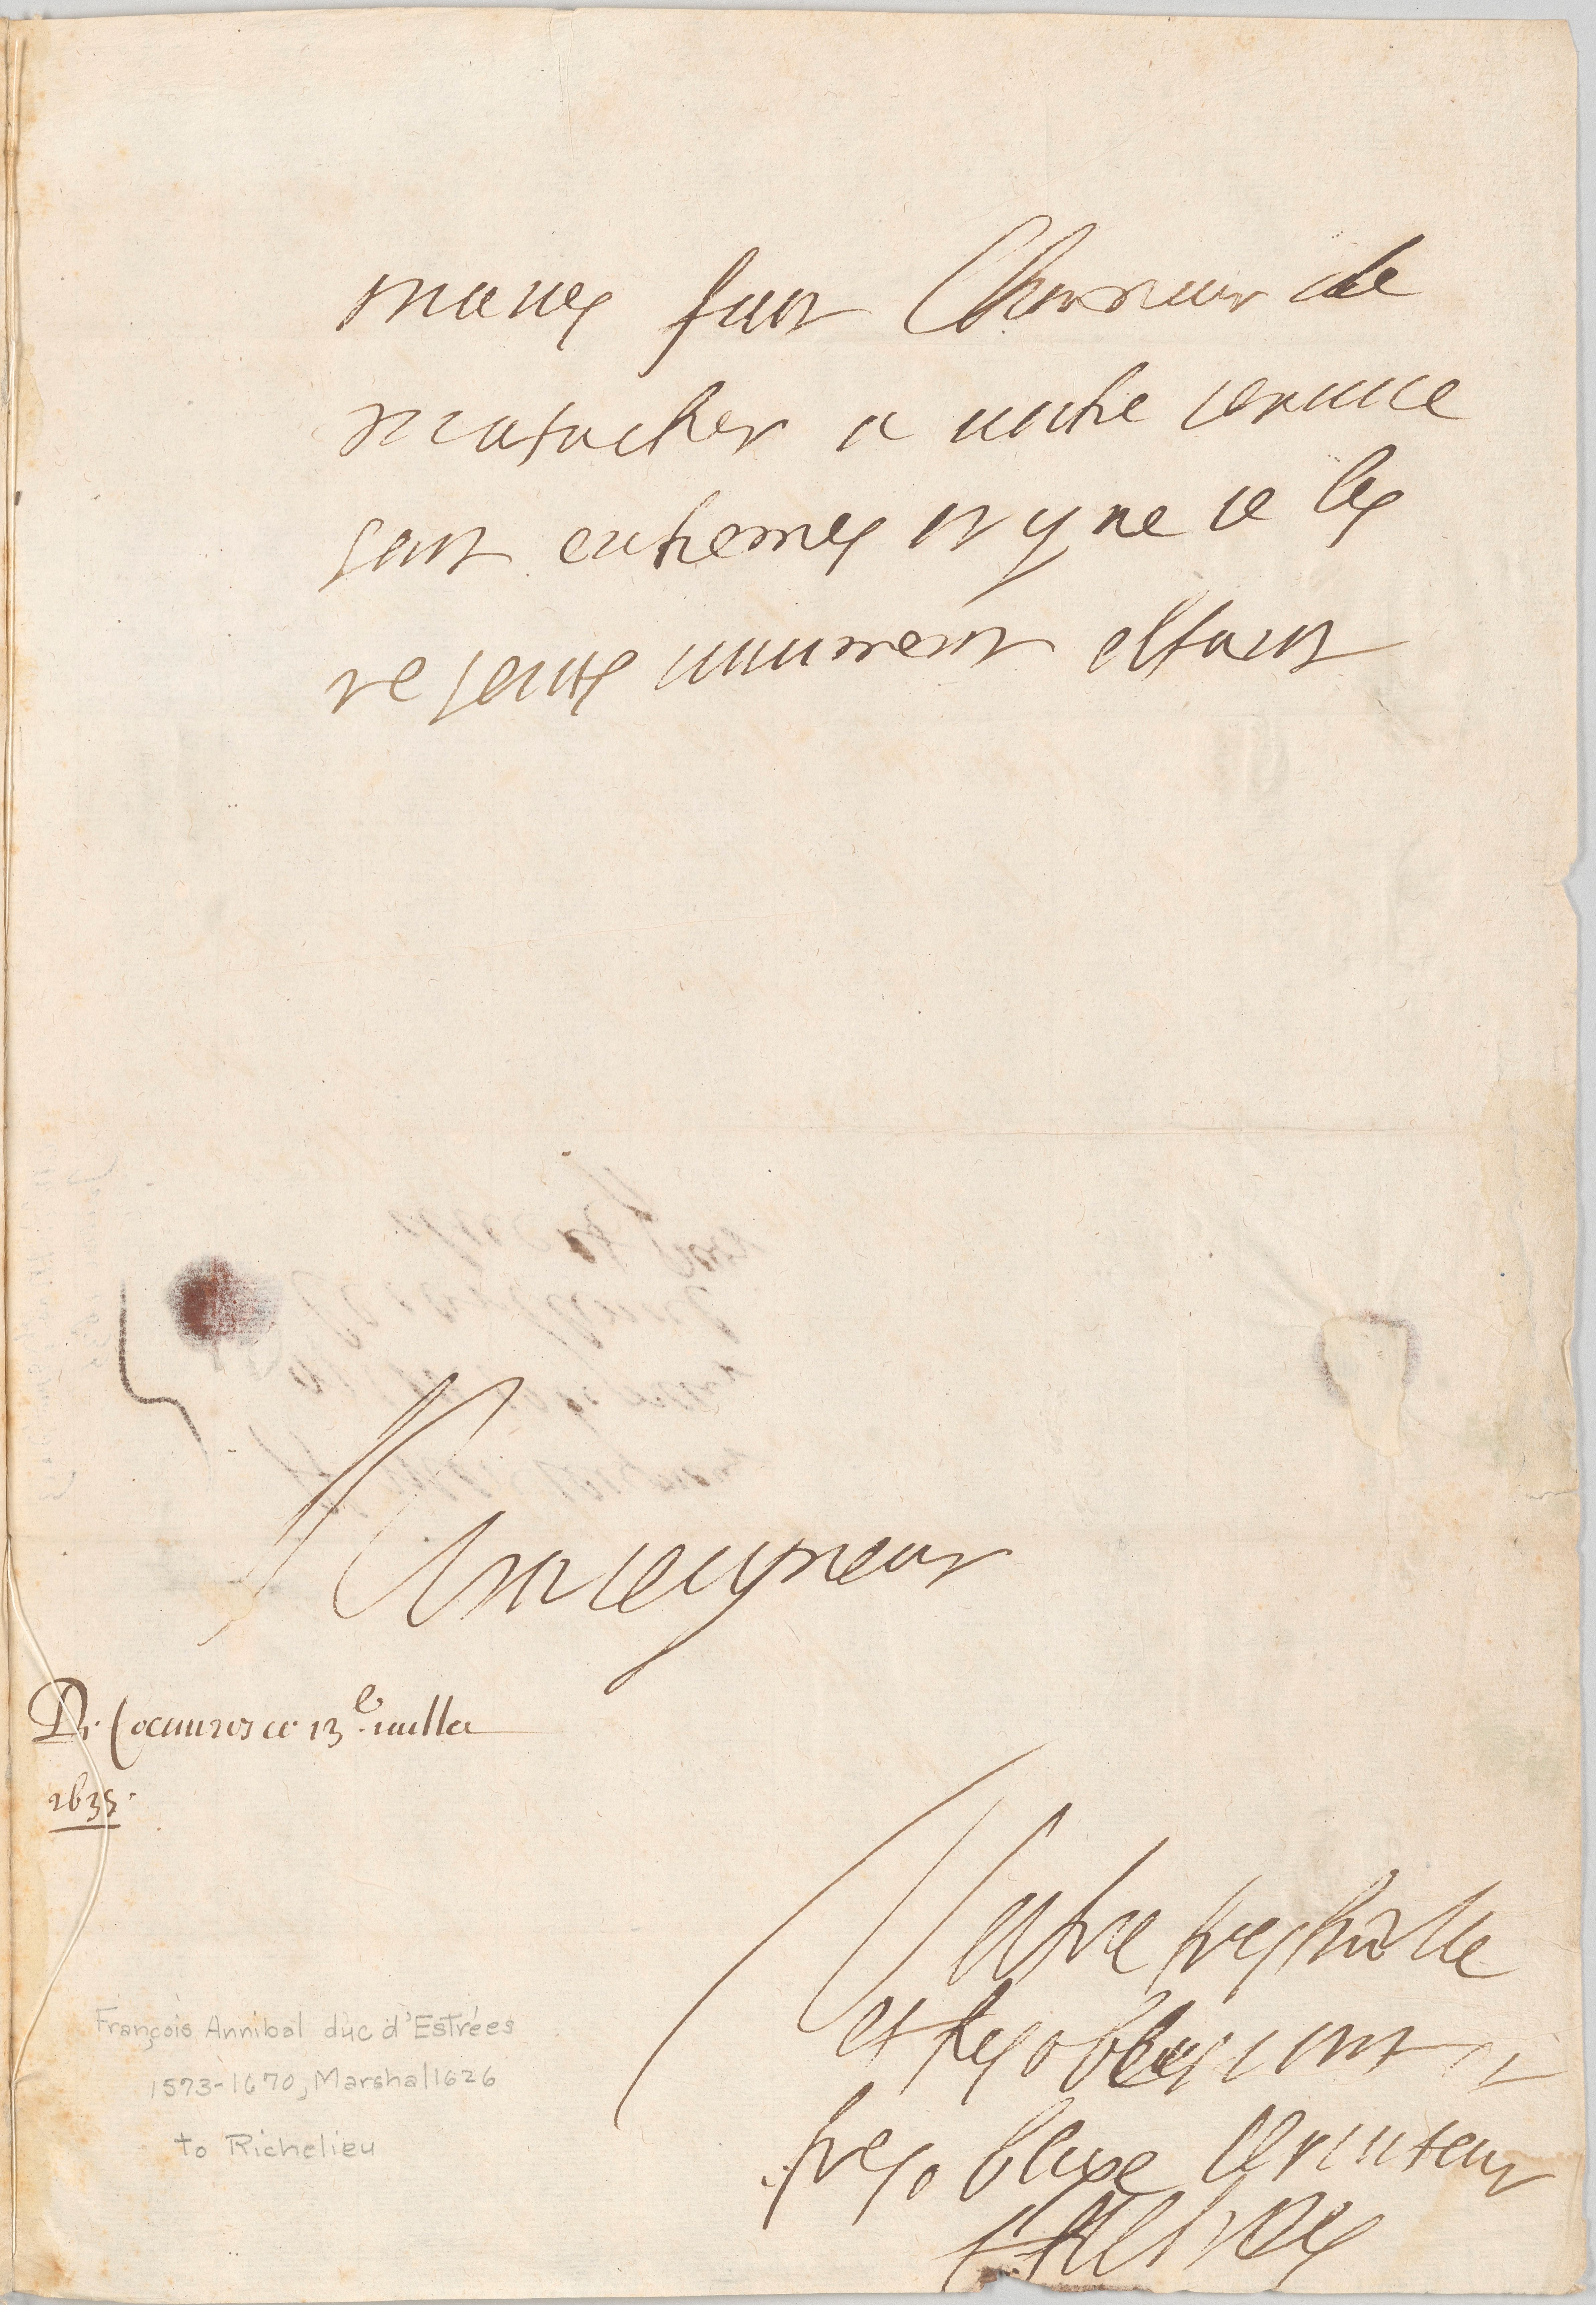 maues fait Lhonneur de
matacher a uostre seruice
sont extremes et que ie les
resents uiuement estant
Monseigneur
De Coeuures ce 13e iuillet
1635.
Vostre tres humble
et tres obeissant et
tres oblige seruiteur
François Annibal duc d'Estrées
1573-1670, Marshal 1626
to Richelieu